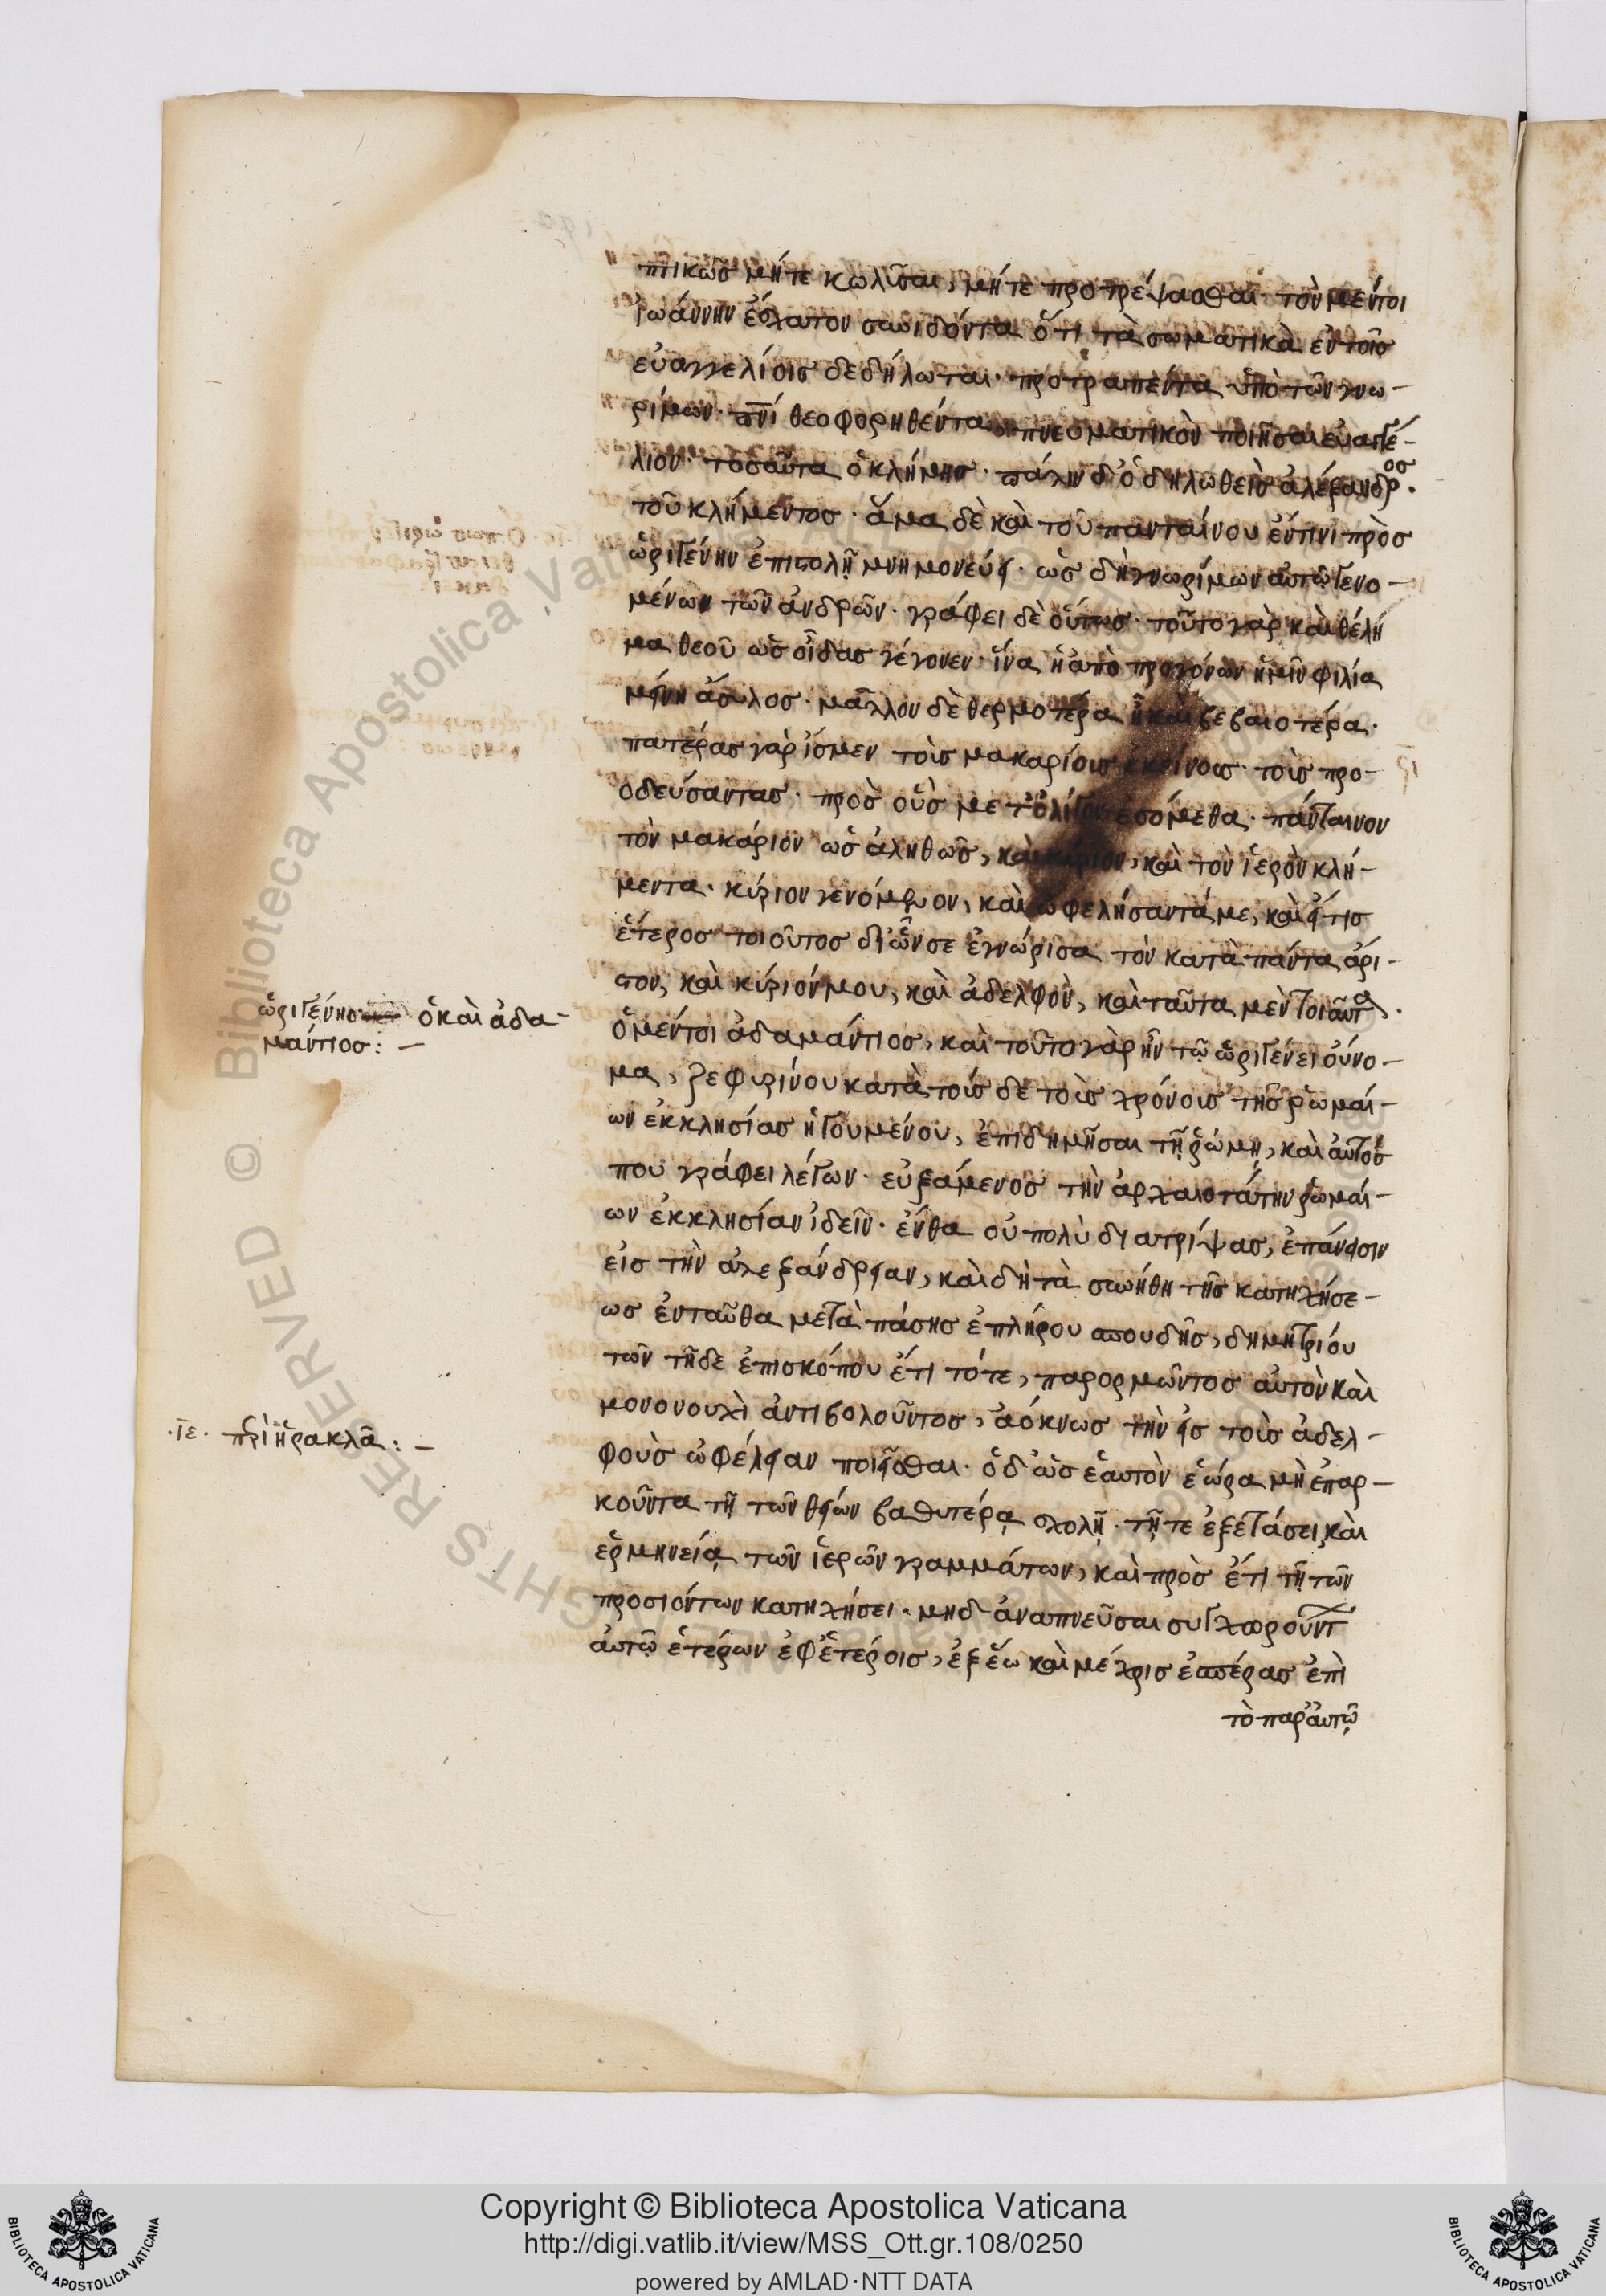 πτικῶσ μήτε κωλῦσαι, μήτε προτρέψασθαι· τὸν μέντοι
ἰωάννην ἔσχατον συνιδόντα ὅτι τὰ σωματικὰ ἐν τοῖσ
εὐαγγελίοισ δεδήλωται· προτραπέντα ὑπὸ τῶν γνω-
ρίμων· πνι θεοφορηθέντα πνευματικὸν ποιῆσαι εὐαγγέ-
λιον· τοσαῦτα ὁ κλήμησ· πάλιν δ' ὁ δηλωθεὶσ ἀλέξανδροσ.
τοῦ κλήμεντοσ· ἅμα δὲ καὶ τοῦ πανταίνου ἔν τινι πρὸσ
ὠριγένην ἐπιστολῇ μνημονεύει· ὡσ δὴ γνωρίμων αὐτῷ γενο-
μένων τῶν ἀνδρῶν· γράφει δὲ οὕτωσ· τοῦτο γὰρ καὶ θέλη
μα θεοῦ ὡσ οἶδασ γέγονεν· ἵνα ἡ ἀπὸ προγόνων ἡμῖν φιλία
μένη ἄσυλοσ· μᾶλλον δὲ θερμοτέρα ἢ καὶ βεβαιοτέρα·
πατέρασ γὰρ ἴσμεν τοὺσ μακαρίουσ ἐκείνουσ· τοὺσ προ-
οδεύσαντασ· πρὸσ οὓσ μετ' ὀλίγον ἐσόμεθα· πάνταινον
τὸν μακάριον ὡσ ἀληθῶσ, καὶ κύριον, καὶ τὸν ἱερὸν κλή-
μεντα· κύριον γενόμενον, καὶ ὠφελήσαντά με, καὶ εἴ τισ
ἕτεροσ τοιοῦτοσ δι' ὧν σε ἐγνώρισα τὸν κατὰ πάντα ἄρι-
στον, καὶ κύριόν μου, καὶ ἀδελφὸν, καὶ ταῦτα μὲν τοιαῦτα.
ὠριγένησ ὁ καὶ ἀδα-
μάντιοσ: -
ὁ μέντοι ἀδαμάντιοσ, καὶ τοῦτο γὰρ ἦν τῷ ὠριγένει οὔνο-
μα, ζεφυρίνου κατὰ τούσδε τοὺσ χρόνουσ τῆσ ῥωμαί-
ων ἐκκλησίασ ἡγουμένου, ἐπιδημῆσαι τῇ ῥώμῃ, καὶ αὐτόσ
που γράφει λέγων· εὐξάμενοσ τὴν ἀρχαιοτάτην ῥωμαί-
ων ἐκκλησίαν ἰδεῖν· ἔνθα οὐ πολὺ διατρίψασ, ἐπάνεισιν
εἰσ τὴν ἀλεξάνδρειαν, καὶ δὴ τὰ συνήθη τῆσ κατηχήσε-
ωσ ἐνταῦθα μετὰ πάσησ ἐπλήρου σπουδῆσ, δημητρίου
τῶν τῇδε ἐπισκόπου ἔτι τότε, παρορμῶντοσ αὐτὸν καὶ
μονονουχὶ ἀντιβολοῦντοσ, ἀόκνωσ τὴν εἰσ τοὺσ ἀδελ-
·ιε· περὶ ἡρακλᾶ: -
φοὺσ ὠφέλειαν ποιεῖσθαι· ὁ δ' ὡσ ἑαυτὸν ἑώρα μὴ ἐπαρ-
κοῦντα τῇ τῶν θείων βαθυτέρᾳ σχολῇ· τῇ τε ἐξετάσει καὶ
ἑρμηνείᾳ τῶν ἱερῶν γραμμάτων, καὶ πρὸσ ἔτι τῇ τῶν
προσιόντων κατηχήσει· μηδ' ἀναπνεῦσαι συγχωροῦντ
αὐτῷ ἑτέρων ἐφ' ἑτέροισ, ἐξ ἕω καὶ μέχρισ ἑσπέρασ ἐπὶ
τὸ παρ' αὐτῷ
Copyright © Biblioteca Apostolica Vaticana
http://digi.vatlib.it/view/MSS_Ott.gr.108/0250
powered by AMLAD·NTT DATA